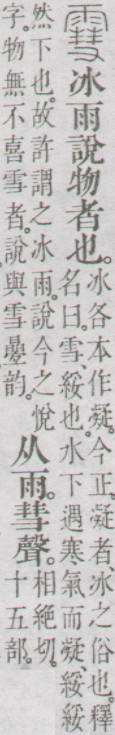 䨮冰雨說物者也。冰各本作凝。今正。凝者、冰之俗也。釋
名曰。雪、綏也。水下遇寒氣而凝、綏綏
然下也。故許謂之冰雨。說今之悅
字。物無不喜雪者。說與雪曡韵。
从雨。彗聲。相絕切。十五部。